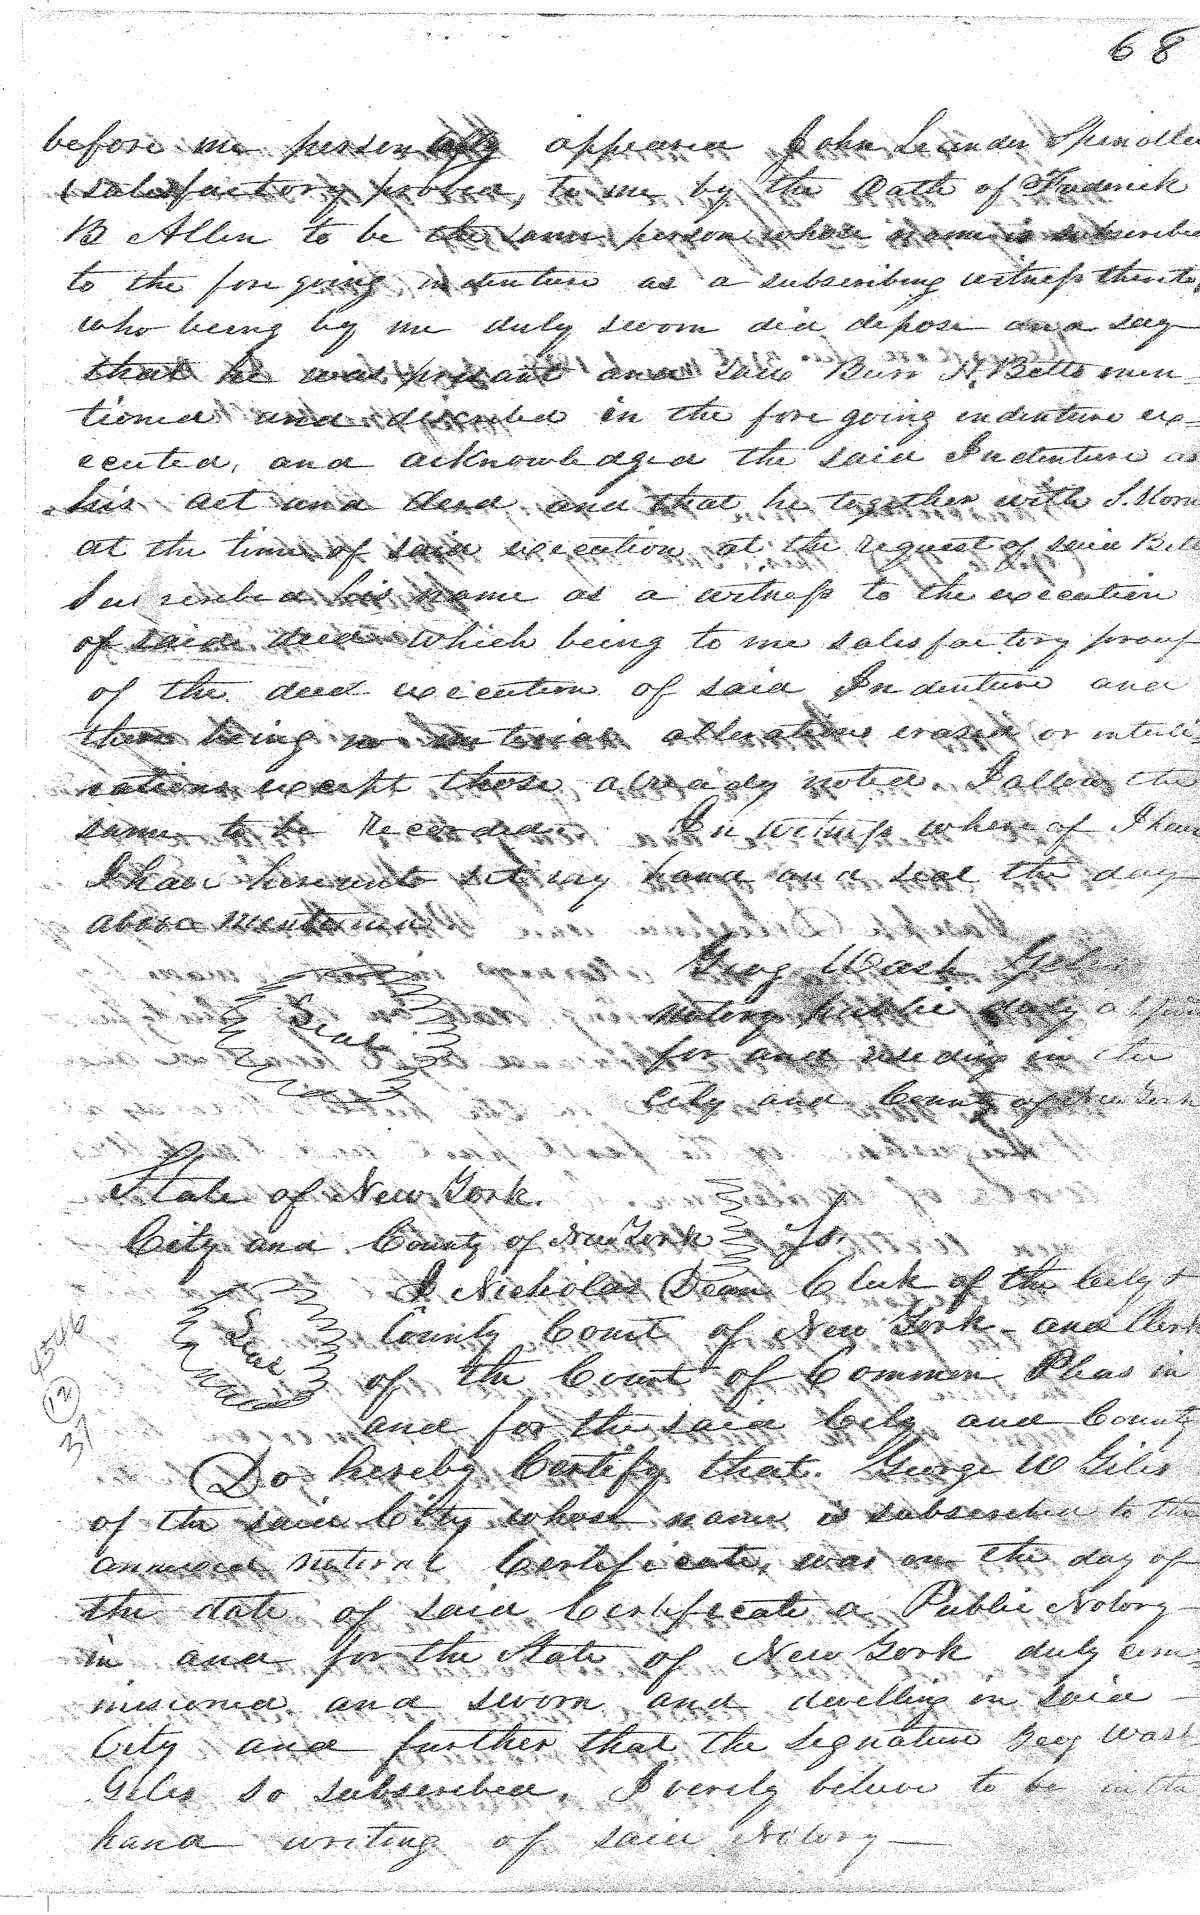 68
before me personally appeared John Leander Spinoller
(satisfactory proved, to me by the Oath of Frederick
B Allen to be the same person whose name is subscribed
to the foregoing indenture as a subscribing witness thereto,
who being by me duly sworn did depose and say
that he was present and saw Burr H. Betts men-
tioned and described in the foregoing indenture ex-
ecuted, and acknowledged the said Indenture as
his act and deed and that he together with S.
at the time of said execution at the request of said Bett
Subscribed his name as a witness to the execution
of said deed which being to me satisfactory proof
of the deed execution of said Indenture and
there being no material alterations erased or interli-
nations except those already noted. I allow the
same to be Recorded. In witness whereof I have
I have hereunto set my hand and seal the day
above mentioned
Geog Wash Giles
Seal
notary public duly
for and residing in the
City and County of New York
State of New York.
City and County of New York Ss.
I Nicholas Dean Clerk of the City &
Seal
County Court of New York and Clerk
of the Court of Common Pleas in
and for the said City and County
4546
12
37
Do hereby Certify that. George W Giles
of the said City whose name is subscribed to the
annexed notoral Certificate, was on the day of
the date of said Certificate a Public Notory
in and for the State of New York duly com-
missioned and sworn and dwelling in said
City and further that the signature Geog Wash
Giles so subscribed. I verily believe to be in the
hand writing of said Notory